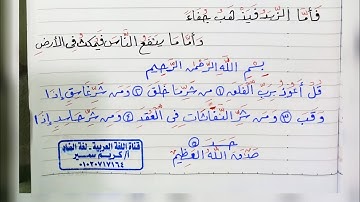 فَأَمَّا الزَّبَدُ فَيَذْهَبُ جُفَاءً
وَأَمَّا مَا يَنفَعُ النَّاسَ فَيَمْكُثُ فِى الأَرْضِ
بِسْمِ اللَّهِ الرَّحْمَٰنِ الرَّحِيمِ
قُلْ أَعُوذُ بِرَبِّ الْفَلَقِ ① مِن شَرِّ مَا خَلَقَ ② وَمِن شَرِّ غَاسِقٍ إِذَا
وَقَبَ ③ وَمِن شَرِّ النَّفَّاثَاتِ فِي الْعُقَدِ ④ وَمِن شَرِّ حَاسِدٍ إِذَا
حَسَدَ ⑤
صَدَقَ اللَّهُ العَظِيمُ
قناة اللغة العربية - لغة الضاد
أ/كريم سمير
٠١٠٢٠٧١٧١٦٤